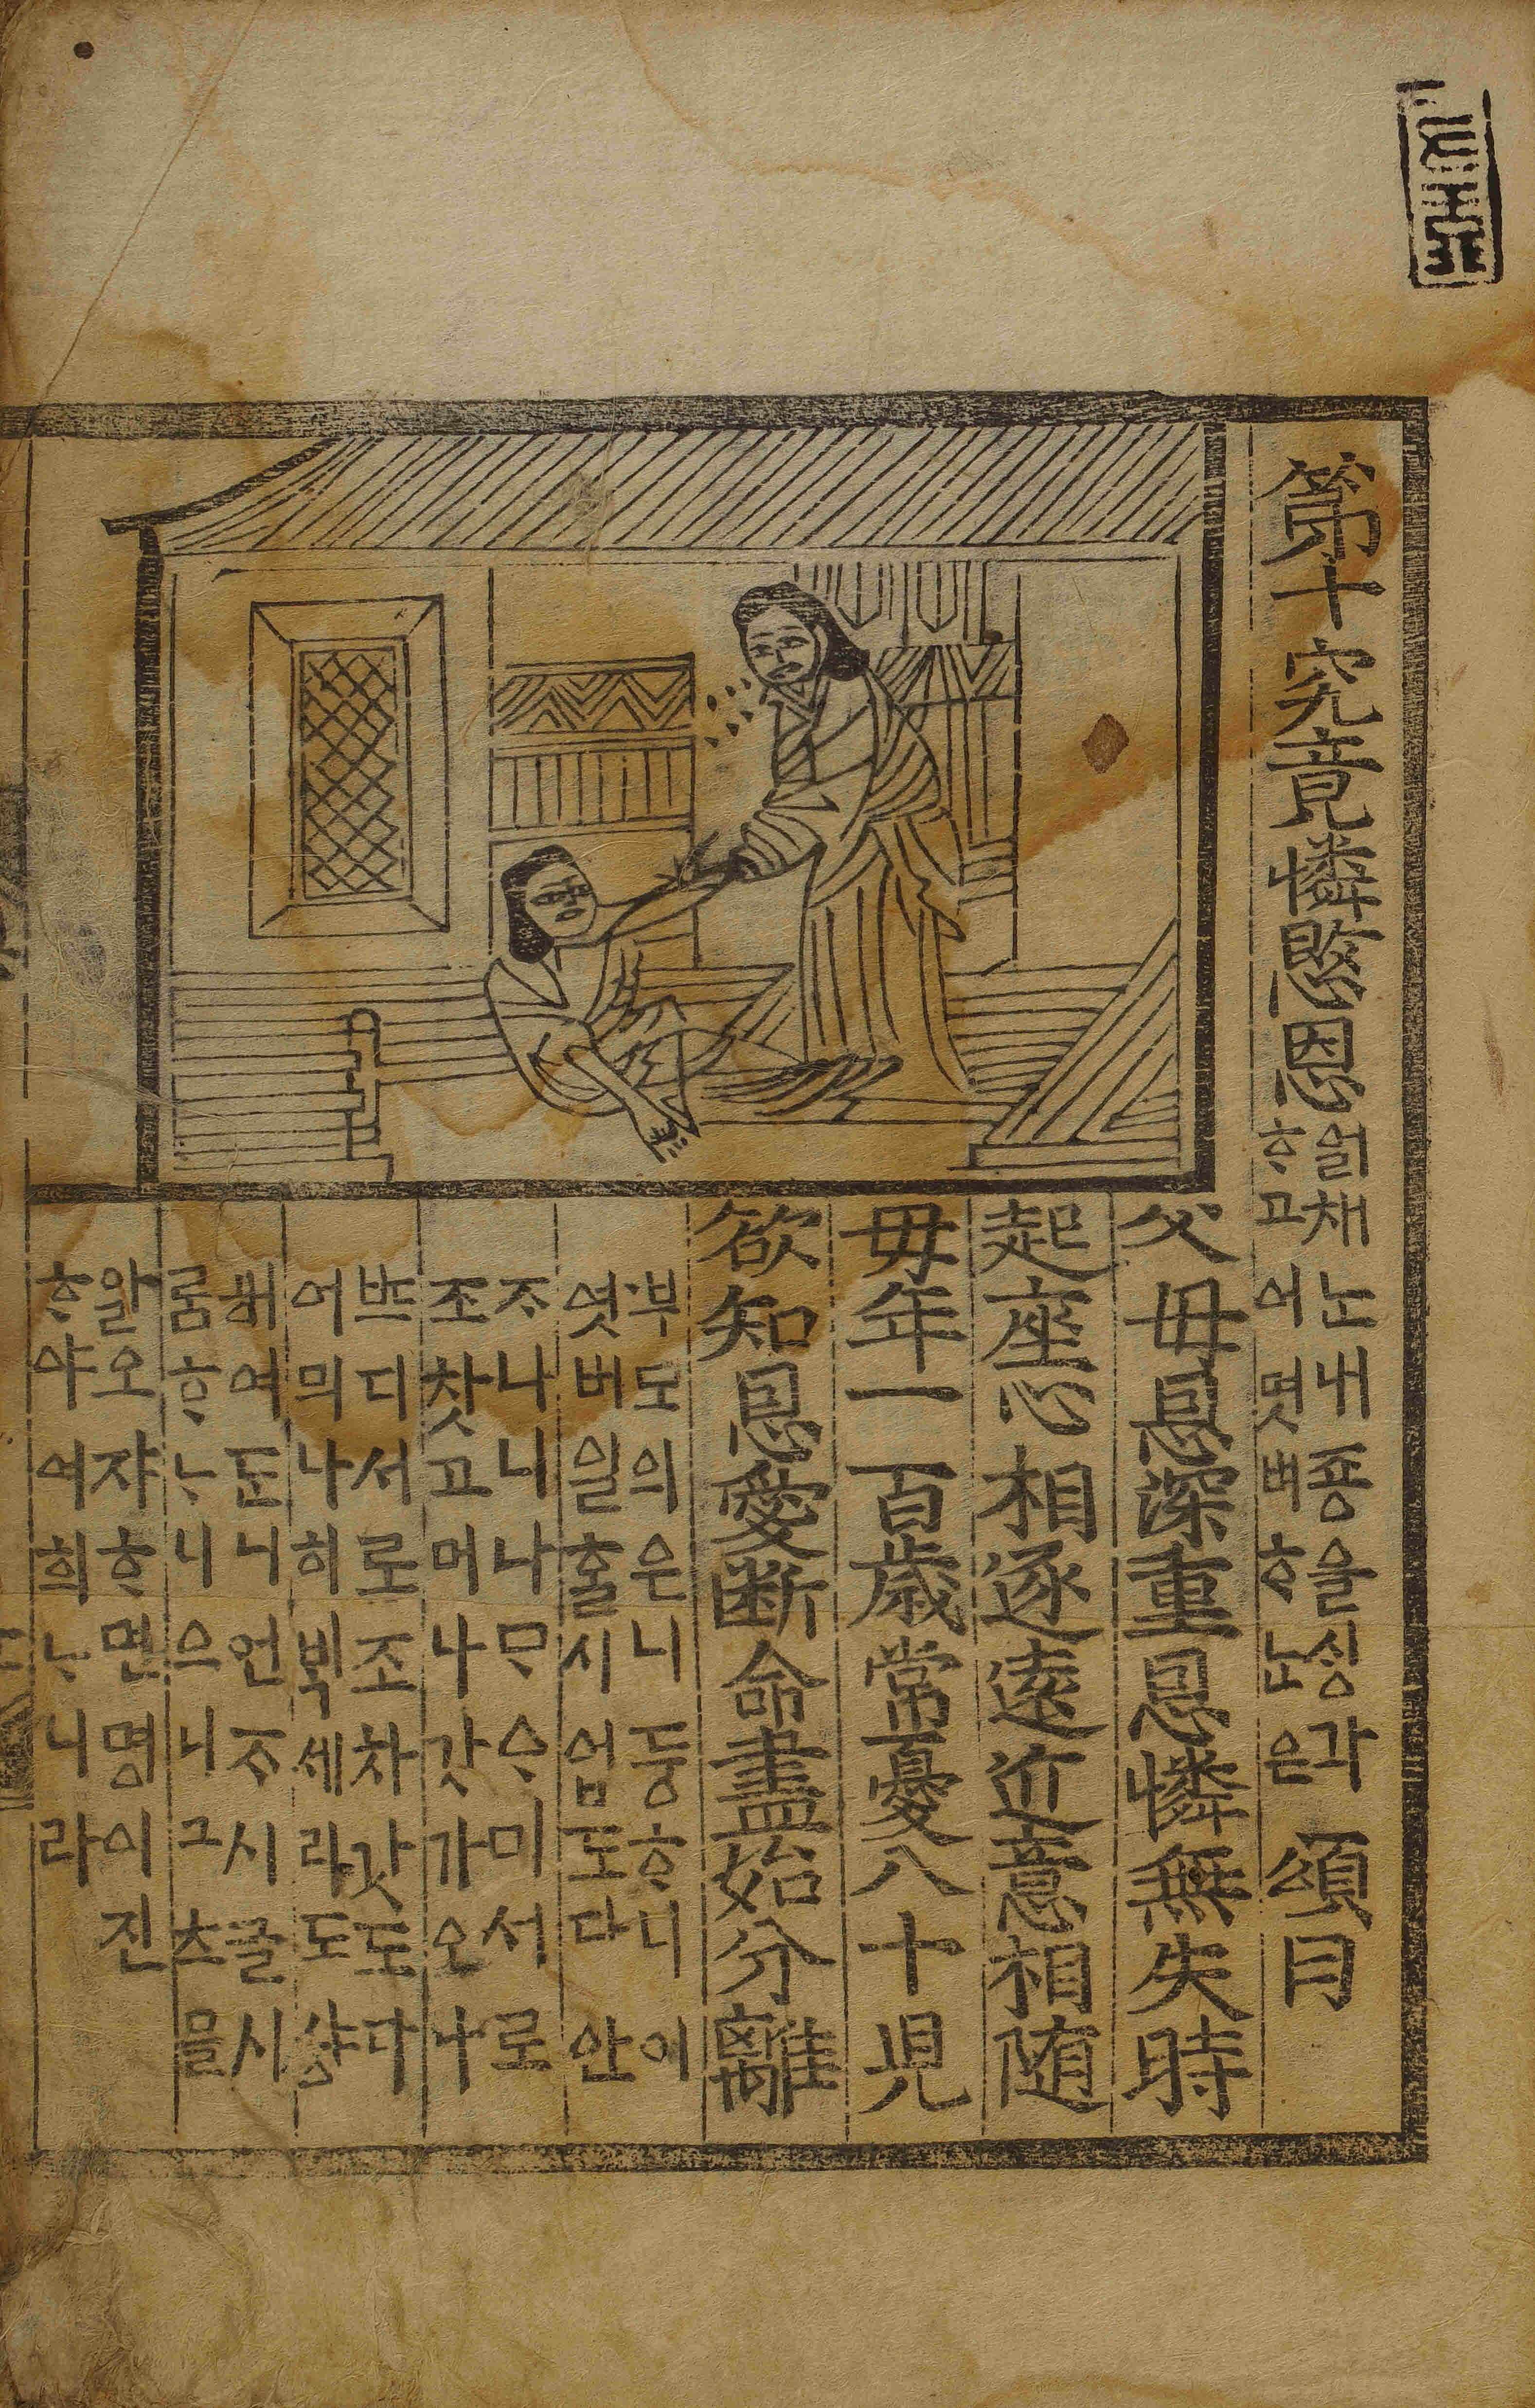 第十究竟憐愍恩 열채ᄂᆞᆫ내죵을싱각
ᄒᆞ고어엿ᄲᅥᄒᆞᄂᆞᆫ은 頌曰
父母恩深重恩憐無失時
起座心相逐遠近意相随
母年一百歳常憂八十児
欲知恩愛断命盡始分離
부모의은니듕ᄒᆞ니이
엿버일홀시업도다안
ᄌᆞ나니나ᄆᆞᄋᆞ미서로
조찻고머나갓가오나
ᄠᅳ디서로조차갓도다
어믜나히ᄇᆡᆨ세라도샹
해여둔니언ᄌᆞ시글시
룸ᄒᆞᄂᆞ니으니그츠믈
알오쟈ᄒᆞ면명이진
ᄒᆞ야여희ᄂᆞ니라